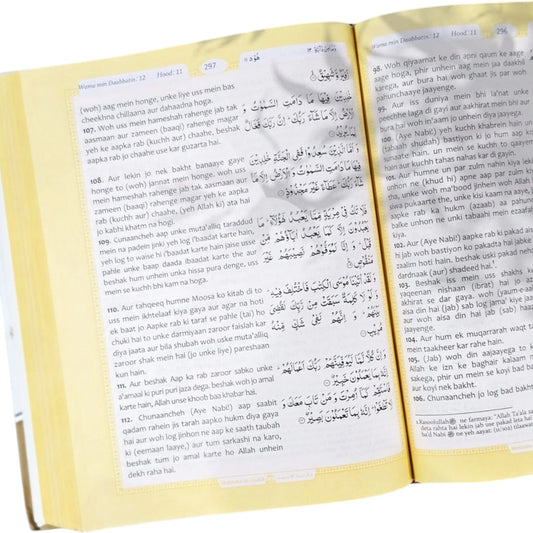 Wama min Daabbatin: 12
Hood: 11
297
هُوۡد ١١
(woh) aag mein honge, unke liye uss mein bas
cheekhna chillaana aur dahaadna hoga.
107. Woh uss mein hameshah rahenge jab tak
aasmaan aur zameen (baaqi) rahenge magar
yeh ke aapka rab (kuchh aur) chaahe, beshak
aapka rab jo chaahe use kar guzarta hai.
108. Aur lekin jo nek bakht banaaye gaye
honge to (woh) jannat mein honge, woh uss
mein hameshah rahenge jab tak aasmaan aur
zameen (baaqi) rahenge magar yeh ke aapka
rab (kuchh aur) chaahe. (yeh Allah ki) ata hai
jo kabhi khatm na hogi.
109. Cunaancheh aap unke muta'alliq taraddud
mein na padein jinki yeh log ibaadat karte hain,
yeh log to waise hi ibaadat karte hain jaise unse
pahle unke baap daada ibaadat karte the aur
beshak hum unhein unka hissa pura denge, uss
mein se kuchh bhi kam na hoga.
110. Aur tahqeeq humne Moosa ko kitab di to
uss mein ikhtelaaf kiya gaya aur agar na hoti
ek baat jo Aapke rab ki taraf se pahle (tai) ho
chuki hai to unke darmiyaan zaroor faislah kar
diya jaata aur bila shubah woh uske muta'alliq
zaroor shak mein hai (jo unke liye) pareshaan
kun hai.
111. Aur beshak Aap ka rab zaroor sabko unke
a'maal ki puri puri jaza dega. beshak woh jo amal
karte hain, Allah unse khoob baa khabar hai.
112. Chunaancheh (Aye Nabi!) aap saabit
qadam rahein jis tarah aapko hukm diya gaya
hai aur woh log jinhon ne aap ke saath taubah
ki (eemaan laaye,) aur tum sarkashi na karo,
beshak tum jo amal karte ho Allah unhein
dekh raha hai.
زَفِيْرٌ وَّشَهِيْقٌ
خٰلِدِيْنَ فِيْهَا مَا دَامَتِ السَّمٰوٰتُ وَ
الْاَرْضُ اِلَّا مَا شَآءَ رَبُّكَ ؕ اِنَّ رَبَّكَ فَعَّالٌ
لِّمَا يُرِيْدُ
وَ اَمَّا الَّذِيْنَ سُعِدُوْا فَفِي الْجَنَّةِ خٰلِدِيْنَ
فِيْهَا مَا دَامَتِ السَّمٰوٰتُ وَ الْاَرْضُ اِلَّا
مَا شَآءَ رَبُّكَ ؕ عَطَآءً غَيْرَ مَجْذُوْذٍ
فَلَا تَكُ فِيْ مِرْيَةٍ مِّمَّا يَعْبُدُ هٰٓؤُلَآءِ ؕ مَا
يَعْبُدُوْنَ اِلَّا كَمَا يَعْبُدُ اٰبَآؤُهُمْ مِّنْ
قَبْلُ ؕ وَ اِنَّا لَمُوَفُّوْهُمْ نَصِيْبَهُمْ غَيْرَ
مَنْقُوْصٍ
وَلَقَدْ اٰتَيْنَا مُوْسَى الْكِتٰبَ فَاخْتُلِفَ فِيْهِ ؕ
وَ لَوْ لَا كَلِمَةٌ سَبَقَتْ مِنْ رَّبِّكَ لَقُضِيَ
بَيْنَهُمْ ؕ وَ اِنَّهُمْ لَفِيْ شَكٍّ مِّنْهُ
مُرِيْبٍ
وَ اِنَّ كُلًّا لَّمَّا لَيُوَفِّيَنَّهُمْ رَبُّكَ اَعْمَالَهُمْ ؕ
اِنَّهٗ بِمَا يَعْمَلُوْنَ خَبِيْرٌ
فَاسْتَقِمْ كَمَآ اُمِرْتَ وَ مَنْ تَابَ مَعَكَ وَ
لَا تَطْغَوْا ؕ اِنَّهٗ بِمَا تَعْمَلُوْنَ بَصِيْرٌ
Wama min Daabbatin: 12
Hood: 11
296
98. Woh qiyaamat ke din apni qaum ke aage
aage hoga, phir unhein aag mein jaa daakhil
karega, aur bura hai woh ghaat jis par woh
pahunchaaye jaayenge.
99. Aur iss duniya mein bhi la'nat unke
peechhe laga di gayi aur aakhirat mein bhi aur
bura hai woh in'aam jo unhein diya jaayega.
100. (Aye Nabi!) yeh kuchh khabrein hain un
(tabaah shudah) bastiyon ki jo hum aap ko
sunaate hain. un mein se kuchh to qaayem
hain aur kuchh tahas nahas kar di gayin.
101. Aur humne un par zulm nahin kiya lekin
unhon ne (khud hi) apne aap par zulm kiya
the, unke woh ma'bood jinheih woh Allah ke
siwa pukaarte the, unke kisi kaam na aaye, jab
aapke rab ka hukm (azaab) aa pahuncha
balke unhon ne unki tabaahi mein ezaafah
kiya.
102. Aur (Aye Nabi!) aapke rab ki pakad aisi
hi jab woh bastiyon ko pakadta hai jabke
zaalim hoti hain. beshak uski pakad nehayat
dardnaak (aur) shadeed hai.
103. Beshak iss mein uss shakhs ke
yaqeenan nishaan (ibrat) hai jo azaab
akhirat se dar gaya. woh (yaum-e-aakhirat)
aisa din hai (jab) sab log jama' kiye jaayenge
aur woh aisa din hai jab (sab) haazir kiye
jaayenge.
104. Aur hum ek muqarrarah waqt tak
mein taakheer kar rahe hain.
105. (Jab) woh din aajaayega to koi
Allah ke izn ke baghair kalaam na kar
sakega, phir un mein se koyi bad bakht
aur koyi nek bakht.
106. Chunaancheh jo log bad bakht